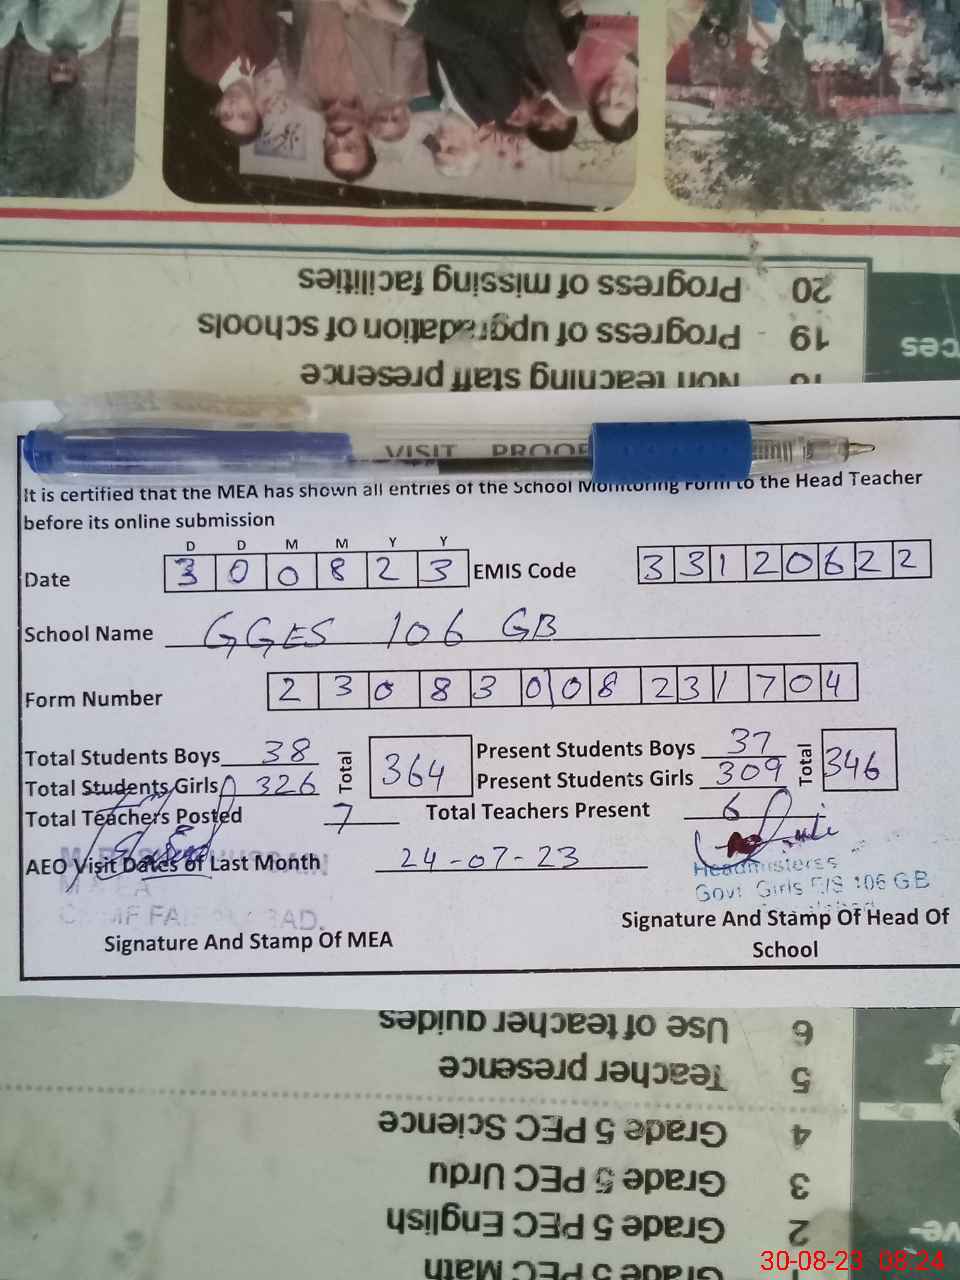 20 Progress of missing facilities
19 Progress of upgradation of schools
Non teaching staff presence
ces
VISIT PROOF
It is certified that the MEA has shown all entries of the School Monitoring Form to the Head Teacher
before its online submission
D D M M Y Y
Date 3 0 0 8 2 3 EMIS Code 3 3 1 2 0 6 2 2
School Name GGES 106 GB
Form Number 2 3 0 8 3 0 0 8 2 3 1 7 0 4
Total Students Boys 38 Total 364 Present Students Boys 37 Total 346
Total Students Girls 326 Present Students Girls 309
Total Teachers Posted 7 Total Teachers Present 6
AEO Visit Dates of Last Month 24-07-23
Headmistress
Govt Girls E/S 106 GB
Signature And Stamp Of MEA
Signature And Stamp Of Head Of
School
6 Use of teacher guides
5 Teacher presence
4 Grade 5 PEC Science
3 Grade 5 PEC Urdu
2 Grade 5 PEC English
Grade 5 PEC Math
30-08-23 08:24